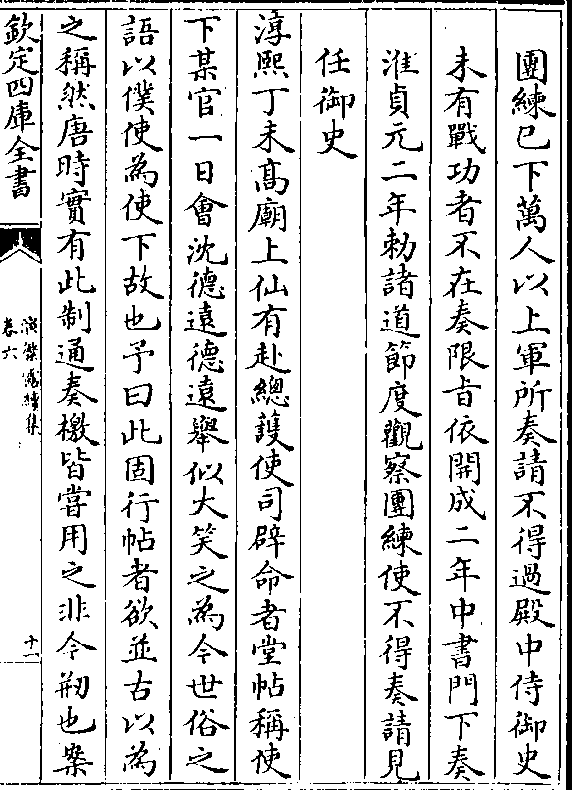 團練已下萬人以上軍所奏請不得過殿中侍御史
未有戰功者不在奏限㫖依開成二年中書門下奏
准貞元二年勅諸道節度觀察團練使不得奏請見
任御史
淳熙丁未髙廟上仙有赴總䕶使司辟命者堂帖稱使
下某官一日㑹沈徳逺徳逺舉似大笑之為今世俗之
語以僕使為使下故也予曰此固行帖者欲並古以為
之稱然唐時實有此制通奏檄皆嘗用之非今剏也案
欽定四庫全書
演繁露續集
卷六
十一